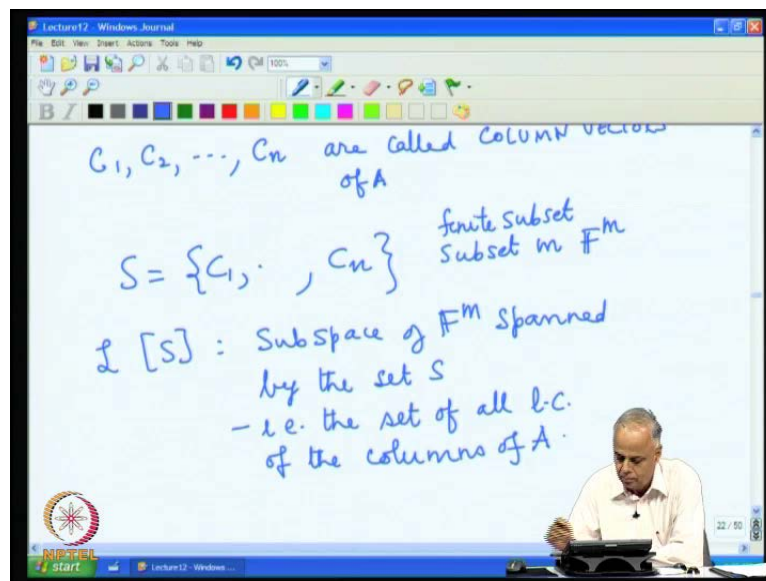 Lecture12 - Windows Journal
File Edit View Insert Actions Tools Help
100%
B I
C1, C2, ---, Cn are called COLUMN VECTORS
of A
S = {C1, · , Cn} finite subset
subset in 𝔽^m
L [S] : Subspace of 𝔽^m spanned
by the set S
- i.e. the set of all l.c.
of the columns of A.
22 / 50
NPTEL
start Lecture12 - Windows ...